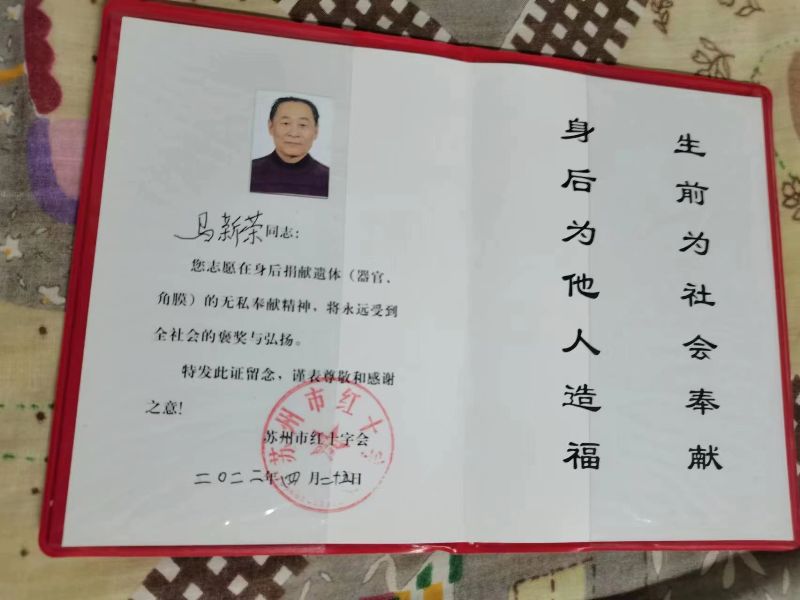 马新荣同志：
您志愿在身后捐献遗体（器官、
角膜）的无私奉献精神，将永远受到
全社会的褒奖与弘扬。
特发此证留念，谨表尊敬和感谢
之意!
苏州市红十字会
二〇二二年四月二十五日
苏州市红十字会
生前为社会奉献
身后为他人造福